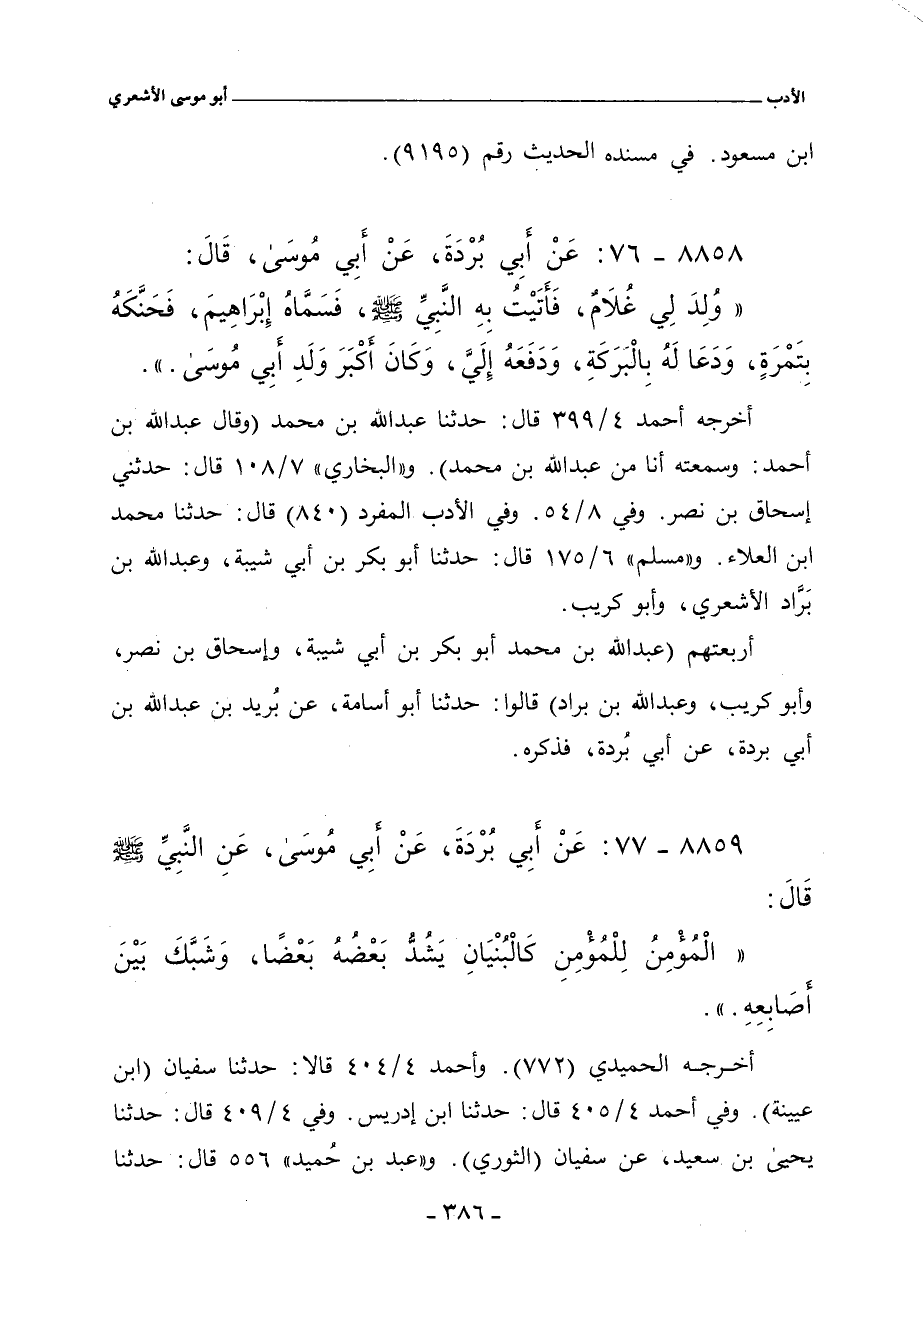 الأدب ــــــــــــــــــــــــــــــــ أبو موسى الأشعري
ابن مسعود. في مسنده الحديث رقم (٩١٩٥).
٨٨٥٨ ـ ٧٦: عَنْ أَبِي بُرْدَةَ، عَنْ أَبِي مُوسَىٰ، قَالَ:
« وُلِدَ لِي غُلَامٌ، فَأَتَيْتُ بِهِ النَّبِيِّ ﷺ، فَسَمَّاهُ إِبْرَاهِيمَ، فَحَنَّكَهُ
بِتَمْرَةٍ، وَدَعَا لَهُ بِالْبَرَكَةِ، وَدَفَعَهُ إِلَيَّ، وَكَانَ أَكْبَرَ وَلَدِ أَبِي مُوسَىٰ.».
أخرجه أحمد ٣٩٩/٤ قال: حدثنا عبدالله بن محمد (وقال عبدالله بن
أحمد: وسمعته أنا من عبدالله بن محمد). و«البخاري» ١٠٨/٧ قال: حدثني
إسحاق بن نصر. وفي ٥٤/٨. وفي الأدب المفرد (٨٤٠) قال: حدثنا محمد
ابن العلاء. و«مسلم» ١٧٥/٦ قال: حدثنا أبو بكر بن أبي شيبة، وعبدالله بن
بَرَّاد الأشعري، وأبو كريب.
أربعتهم (عبدالله بن محمد أبو بكر بن أبي شيبة، وإسحاق بن نصر،
وأبو كريب، وعبدالله بن براد) قالوا: حدثنا أبو أسامة، عن بُريد بن عبدالله بن
أبي بردة، عن أبي بُردة، فذكره.
٨٨٥٩ ـ ٧٧: عَنْ أَبِي بُرْدَةَ، عَنْ أَبِي مُوسَىٰ، عَنِ النَّبِيِّ ﷺ
قَالَ:
« الْمُؤْمِنُ لِلْمُؤْمِنِ كَالْبُنْيَانِ يَشُدُّ بَعْضُهُ بَعْضًا، وَشَبَّكَ بَيْنَ
أَصَابِعِهِ.».
أخـرجـه الحميدي (٧٧٢). وأحمد ٤٠٤/٤ قالا: حدثنا سفيان (ابن
عيينة). وفي أحمد ٤٠٥/٤ قال: حدثنا ابن إدريس. وفي ٤٠٩/٤ قال: حدثنا
يحيىٰ بن سعيد، عن سفيان (الثوري). و«عبد بن حُميد» ٥٥٦ قال: حدثنا
ـ ٣٨٦ ـ